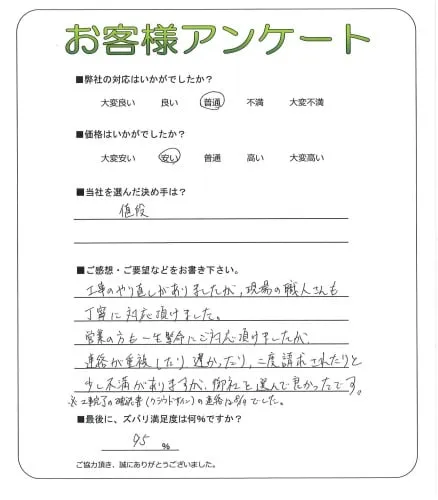 お客様アンケート
■弊社の対応はいかがでしたか？
大変良い 良い 普通 不満 大変不満
■価格はいかがでしたか？
大変安い 安い 普通 高い 大変高い
■当社を選んだ決め手は？
値段
■ご感想・ご要望などをお書き下さい。
工事のやり直しがありましたが、現場の職人さんも
丁寧に対応頂けました。
営業の方も一生懸命にご対応頂けましたが、
連絡が重複したり遅かったり、二度請求されたりと
少し不満がありますが、御社を選んで良かったです。
※工事完了の確認書(クラウドサイン)の連絡は でした。
■最後に、ズバリ満足度は何％ですか？
95 %
ご協力頂き、誠にありがとうございました。